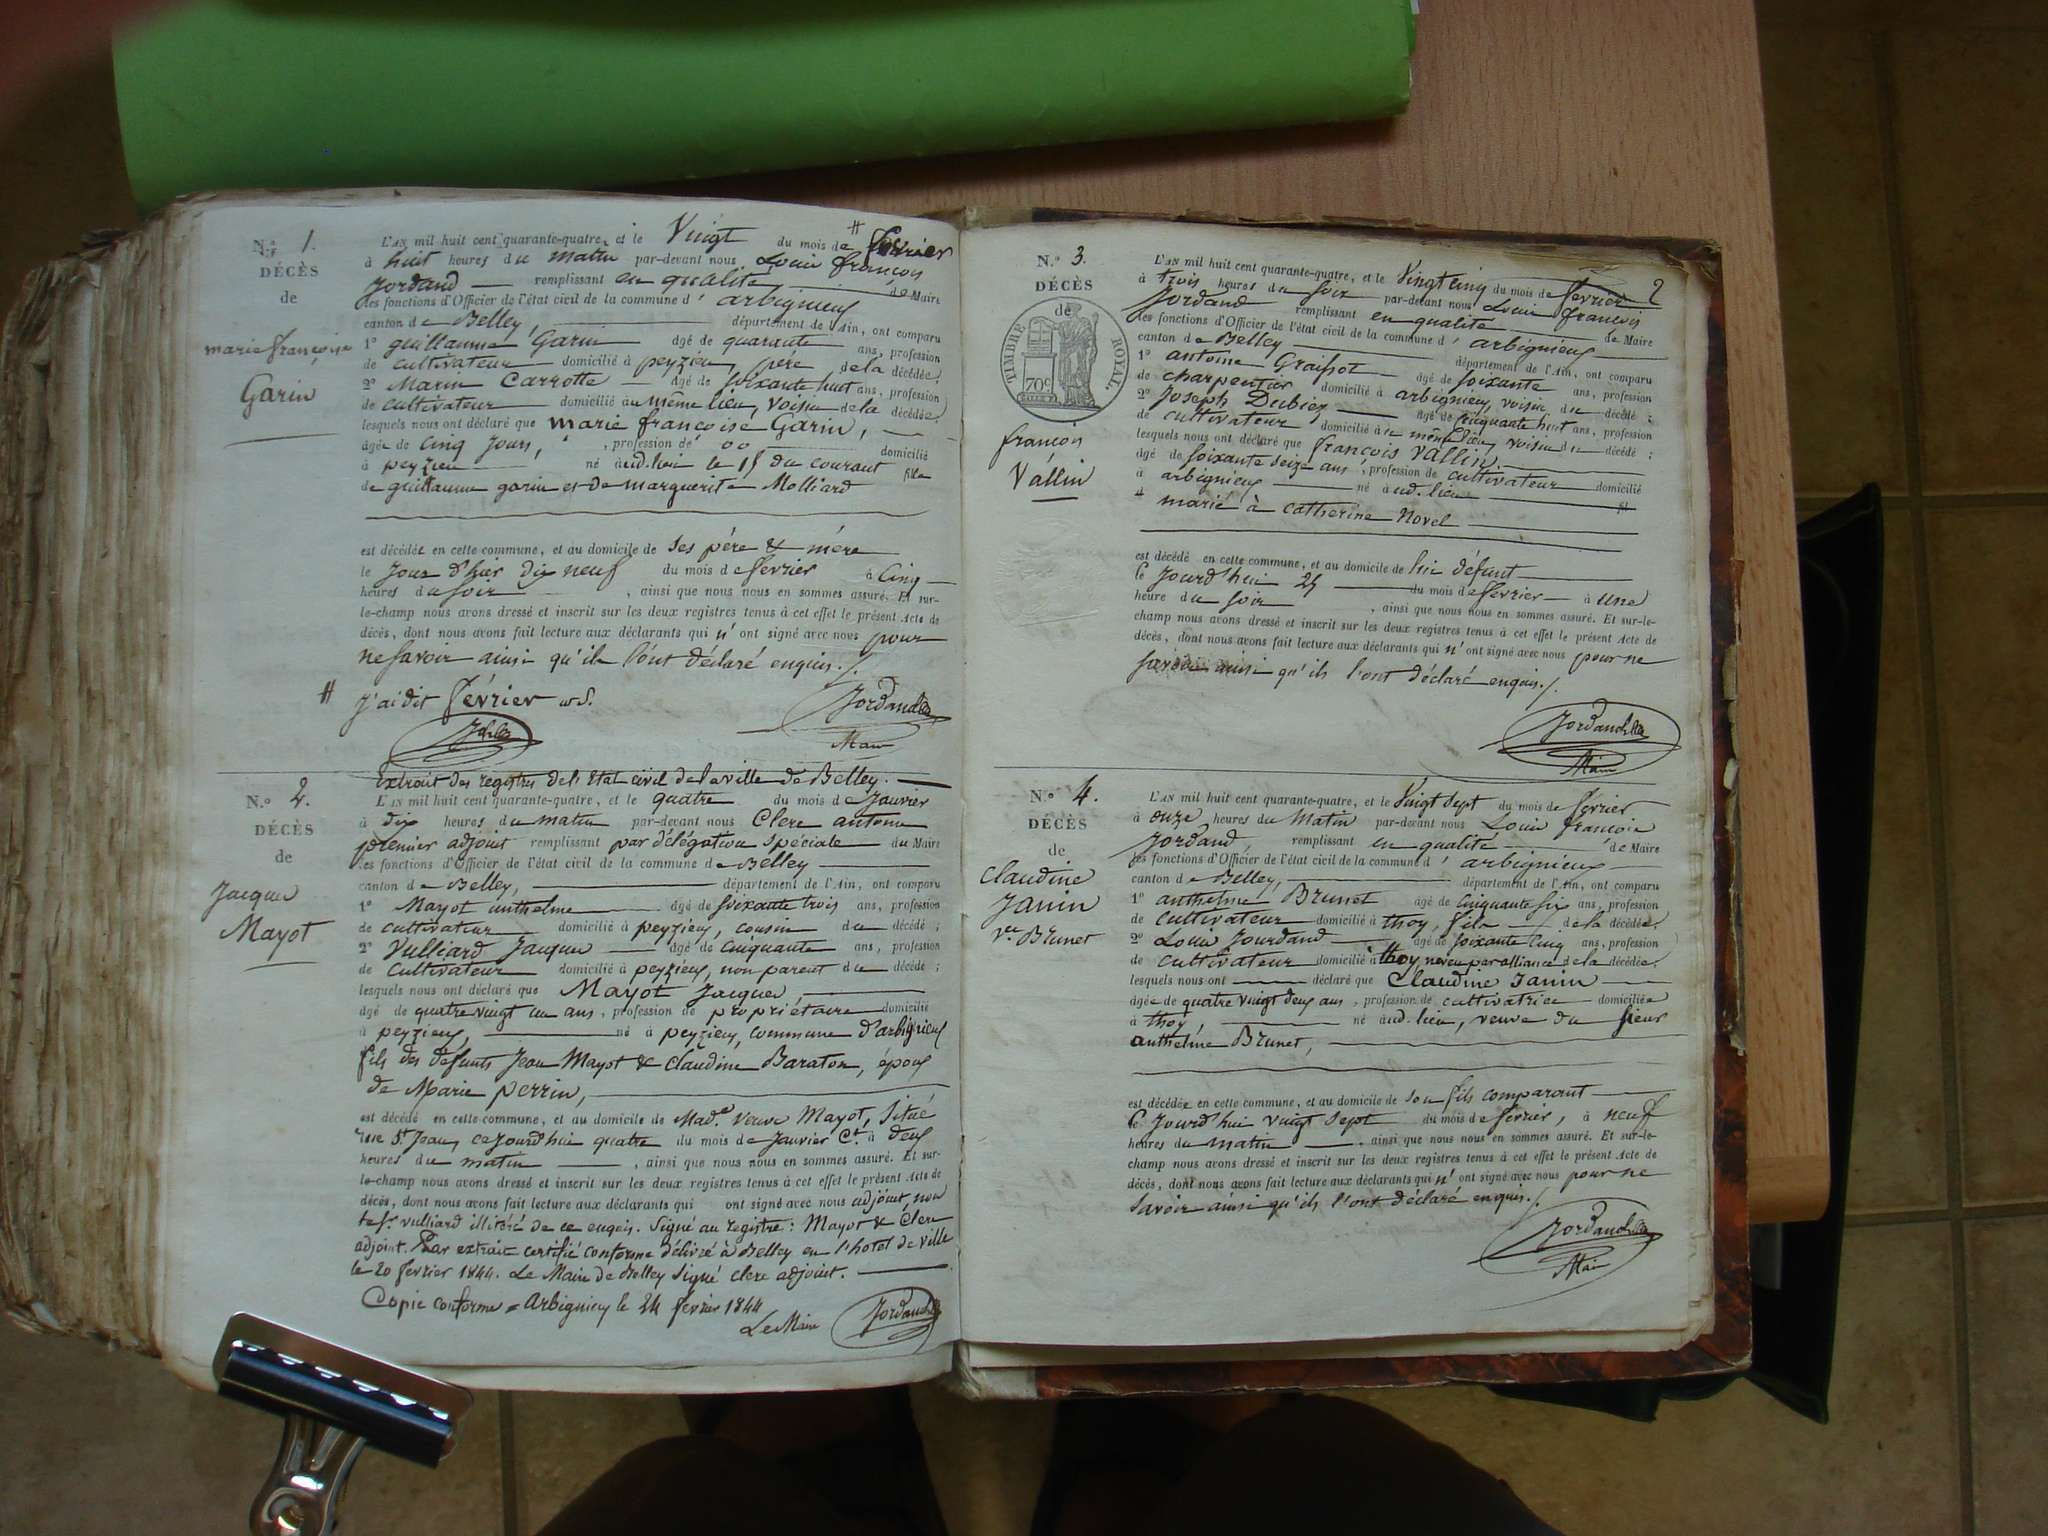 N.º 1.
DÉCÈS
de
marie françoise
Garin
L'AN mil huit cent quarante-quatre, et le Vingt du mois de # février
à huit heures du matin par-devant nous Louis françois
Jordand remplissant en qualité de Maire
les fonctions d'Officier de l'état civil de la commune d' arbignieu
canton de Belley, département de l'Ain, ont comparu
1º guillaume Garin agé de quarante ans, profession
de cultivateur domicilié à peyzieu, père de la décédée;
2º Marin Carrotte agé de soixante huit ans, profession
de cultivateur domicilié au même lieu, voisin de la décédée
lesquels nous ont déclaré que marie françoise Garin,
âgée de cinq jours, profession de oo domicilié
à peyzieu né aud. lieu le 15 du courant fille
de guillaume garin et de marguerite Molliard
est décédée en cette commune, et au domicile de ses père & mère
le jour d'hier dix neuf du mois de fevrier à cinq
heures du soir, ainsi que nous nous en sommes assuré. Et sur-
le-champ nous avons dressé et inscrit sur les deux registres tenus à cet effet le présent Acte de
décès, dont nous avons fait lecture aux déclarants qui n'ont signé avec nous pour
ne savoir ainsi qu'ils l'ont déclaré enquis./.
# j'ai dit février
Jordand
Maire
Extrait des registres de l'Etat civil de la ville de Belley.
N.º 2.
DÉCÈS
de
Jacques
Mayot
L'AN mil huit cent quarante-quatre, et le quatre du mois de Janvier
à dix heures du matin par-devant nous Clerc antoine
premier adjoint remplissant par délégation spéciale du Maire
les fonctions d'Officier de l'état civil de la commune de Belley
canton de Belley, département de l'Ain, ont comparu
1º Mayot anthelme agé de soixante trois ans, profession
de cultivateur domicilié à peyzieu, cousin du décédé;
2º Vulliard Jacques agé de cinquante ans, profession
de cultivateur domicilié à peyzieu, non parent du décédé;
lesquels nous ont déclaré que Mayot Jacques
agé de quatre vingt un ans, profession de propriétaire domicilié
à peyzieu, né à peyzieu, commune d'arbignieu
fils des defunts Jean Mayot & Claudine Baraton, époux
de Marie perrin,
est décédé en cette commune, et au domicile de Mad.e veuve Mayot, situé
rue St Jean, ce jourd'hui quatre du mois de Janvier Ct. à deux
heures du matin, ainsi que nous nous en sommes assuré. Et sur-
le-champ nous avons dressé et inscrit sur les deux registres tenus à cet effet le présent Acte de
décès, dont nous avons fait lecture aux déclarants qui ont signé avec nous adjoint, non
le sr. vulliard illitéré de ce enquis. Signé au registre: Mayot & Clerc
adjoint. Par extrait certifié conforme délivré à Belley en l'hotel de ville
le 20 fevrier 1844. Le Maire de Belley signé clerc adjoint.
Copie conforme = Arbignieu le 24 fevrier 1844
Le Maire Jordand
2
N.º 3.
DÉCÈS
de
TIMBRE ROYAL.
70c
françois
Vallin
L'AN mil huit cent quarante-quatre, et le Vingt cinq du mois de fevrier
à trois heures du soir par-devant nous Louis françois
Jordand remplissant en qualité de Maire
les fonctions d'Officier de l'état civil de la commune d' arbignieu
canton de Belley département de l'Ain, ont comparu
1º antoine Graissot agé de soixante ans, profession
de charpentier domicilié à arbignieu, voisin du décédé;
2º Joseph Dubiez agé de cinquante huit ans, profession
de cultivateur domicilié au même lieu, voisin du décédé;
lesquels nous ont déclaré que françois Vallin
agé de soixante seize ans, profession de cultivateur domicilié
à arbignieu né aud. lieu fil
marié à catherine Novel
est décédé en cette commune, et au domicile de lui défunt
le Jourd'hui 25 du mois de fevrier à une
heure du soir, ainsi que nous nous en sommes assuré. Et sur-le-
champ nous avons dressé et inscrit sur les deux registres tenus à cet effet le présent Acte de
décès, dont nous avons fait lecture aux déclarants qui n'ont signé avec nous pour ne
savoir ainsi qu'ils l'ont déclaré enquis./.
Jordand
Maire
N.º 4.
DÉCÈS
de
Claudine
Janin
ve. Brunet
L'AN mil huit cent quarante-quatre, et le Vingt sept du mois de février
à onze heures du Matin par-devant nous Louis françois
Jordand, remplissant en qualité de Maire
les fonctions d'Officier de l'état civil de la commune d' arbignieu
canton de Belley, département de l'Ain, ont comparu
1º anthelme Brunet agé de cinquante six ans, profession
de cultivateur domicilié à thoy, fils de la décédée.
2º Louis Jourdand agé de soixante cinq ans, profession
de cultivateur domicilié à thoy neveu par alliance de la décédée.
lesquels nous ont déclaré que Claudine Janin
âgée de quatre vingt deux ans, profession de cultivatrice domiciliée
à thoy, né aud. lieu, veuve du sieur
anthelme Brunet,
est décédée en cette commune, et au domicile de son fils comparant
le jourd'hui vingt sept du mois de fevrier, à neuf
heures du matin, ainsi que nous nous en sommes assuré. Et sur-le-
champ nous avons dressé et inscrit sur les deux registres tenus à cet effet le présent Acte de
décès, dont nous avons fait lecture aux déclarants qui n'ont signé avec nous pour ne
savoir ainsi qu'ils l'ont déclaré enquis./.
Jordand
Maire